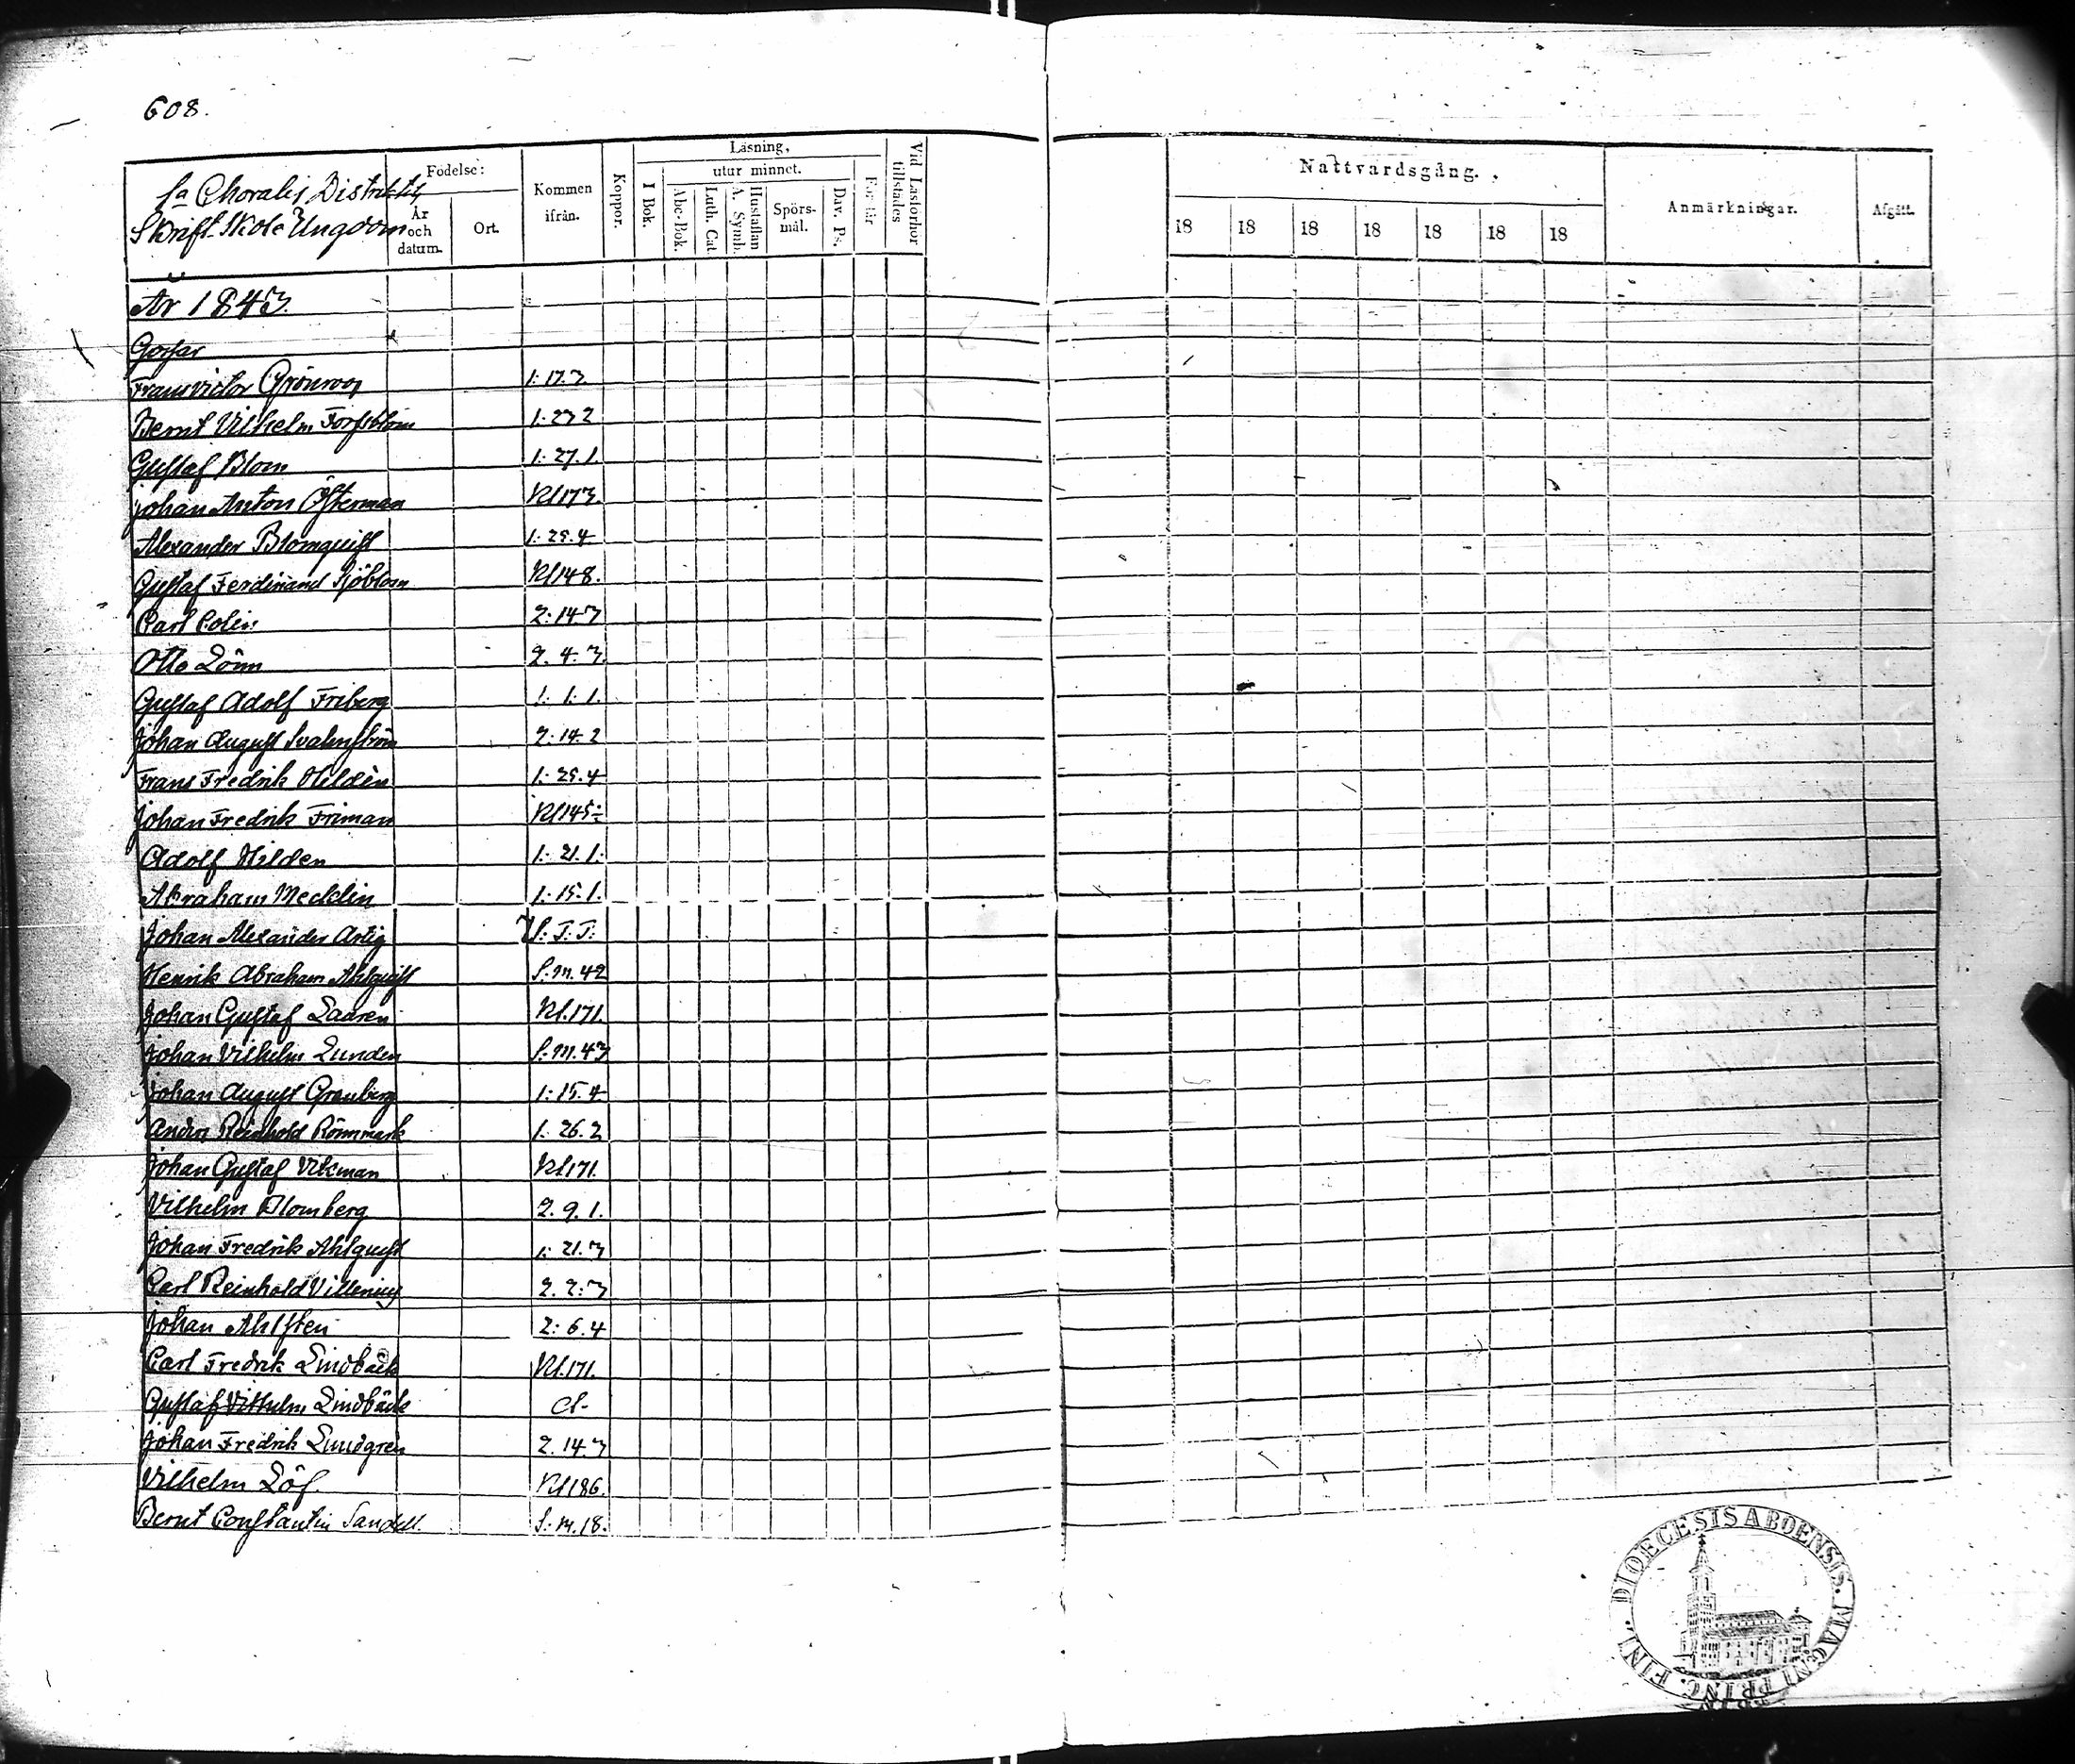 608.
Sa Choralis Distriktets
Skrift-Skole Ungdom
Födelse:
År och datum.
Ort.
Kommen ifrån.
Koppor.
Läsning,
I Bok.
utur minnet.
Abc-Bok.
Luth. Cat.
A. Symb.
Hustaflan
Spörsmål.
Dav. Ps.
Förstår
Vid Läsförhör tillstädes
Nattvardsgång.
18 18 18 18 18 18 18
Anmärkningar.
Afgått.
År 1843.
Gossar
Frans Victor Grönroos 1. 17. 3
Bernt Vilhelm Forssblom 1. 23 2
Gustaf Blom 1. 27. 1.
Johan Anton Österman Kl 173.
Alexander Blomquist 1. 25. 4
Gustaf Ferdinand Sjöblom Kl 148.
Carl Colin 2. 14 3
Otto Lönn 2. 4. 3.
Gustaf Adolf Friberg 1. 1. 1.
Johan August Svalenström 2. 14. 2
Frans Fredrik Hildén 1. 25. 4
Johan Fredrik Friman Kl 145½
Adolf Hilden 1. 21. 1.
Abraham Mecklin 1. 15. 1.
Johan Alexander Artig S. T. T.
Henrik Abraham Ahlquist S. m. 42
Johan Gustaf Laaren Kl. 171.
Johan Vilhelm Lunden S. m. 43
Johan August Granberg 1. 15. 4
Anders Reinhold Rönnmark 1. 26. 2
Johan Gustaf Vikman Kl 171.
Vilhelm Blomberg 2. 9. 1.
Johan Fredrik Ahlquist 1. 21. 3
Carl Reinhold Villenius 2. 2. 3
Johan Ahlsten 2. 6. 4
Carl Fredrik Lindbäck Kl. 171.
Gustaf Vilhelm Lindbäck d.
Johan Fredrik Lundgren 2. 14. 3
Vilhelm Löf. Kl 186.
Bernt Constantin Sandell. S. m. 18.
DIOECESIS ABOENSIS. MAGNI PRINC. FINL.